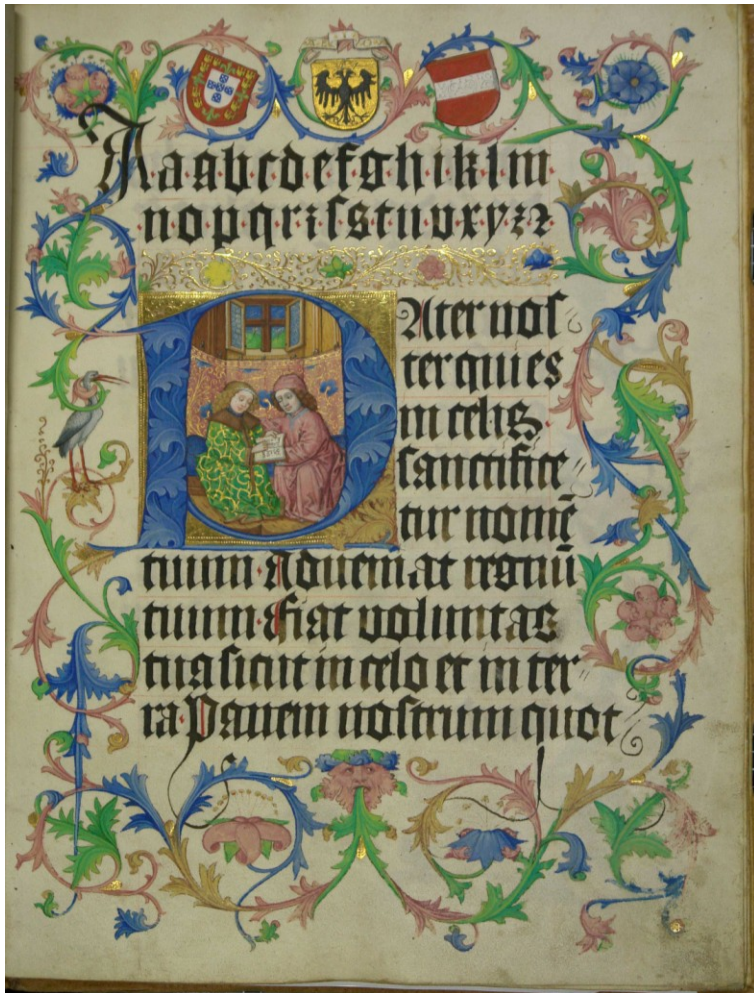 A·a·a·b·c·d·e·f·g·h·i·k·l·m·
·n·o·p·q·r·ꝛ·ſ·s·t·u·v·x·y·z·
PAter noſ
ter qui es
in celis·
ſanctifice
tur nomē
tuum·Adueniat regnū
tuum·fiat voluntas
tua ſicut in celo et in ter
ra·Panem noſtrum quot